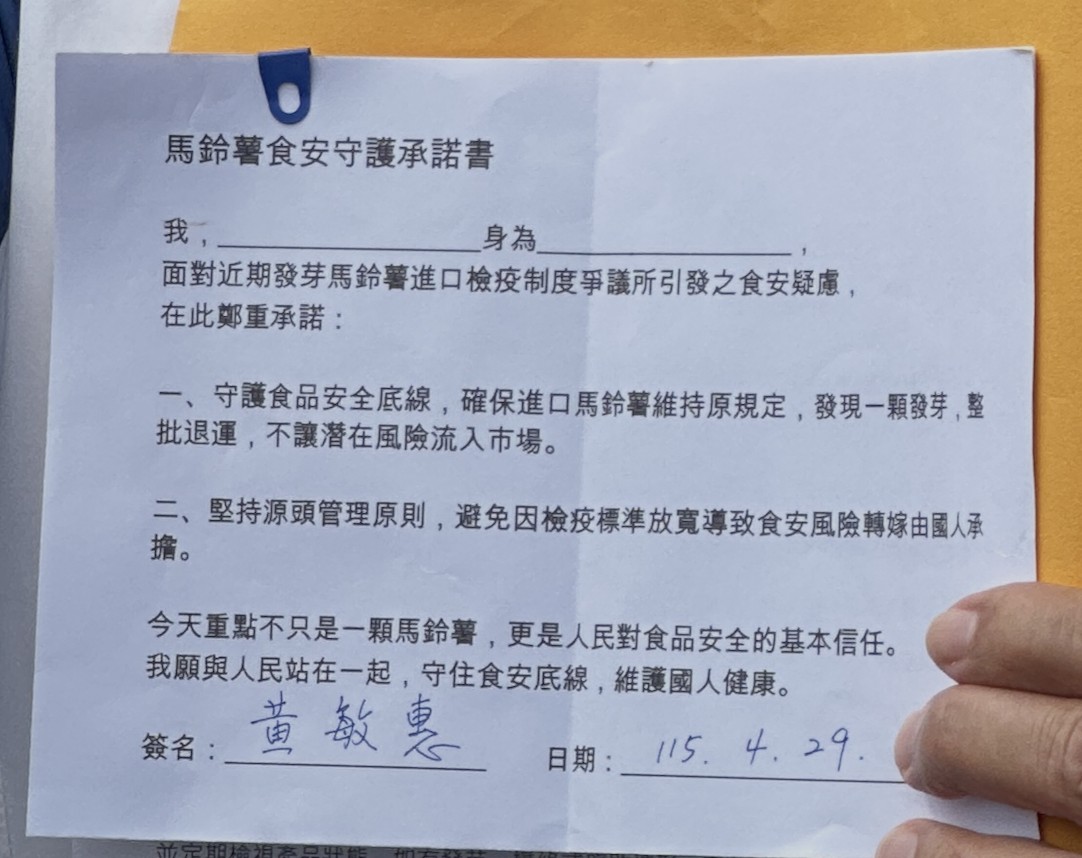 馬鈴薯食安守護承諾書
我，__________________身為__________________，
面對近期發芽馬鈴薯進口檢疫制度爭議所引發之食安疑慮，
在此鄭重承諾：
一、守護食品安全底線，確保進口馬鈴薯維持原規定，發現一顆發芽，整
批退運，不讓潛在風險流入市場。
二、堅持源頭管理原則，避免因檢疫標準放寬導致食安風險轉嫁由國人承
擔。
今天重點不只是一顆馬鈴薯，更是人民對食品安全的基本信任。
我願與人民站在一起，守住食安底線，維護國人健康。
簽名：黃敏惠 日期：115. 4. 29.